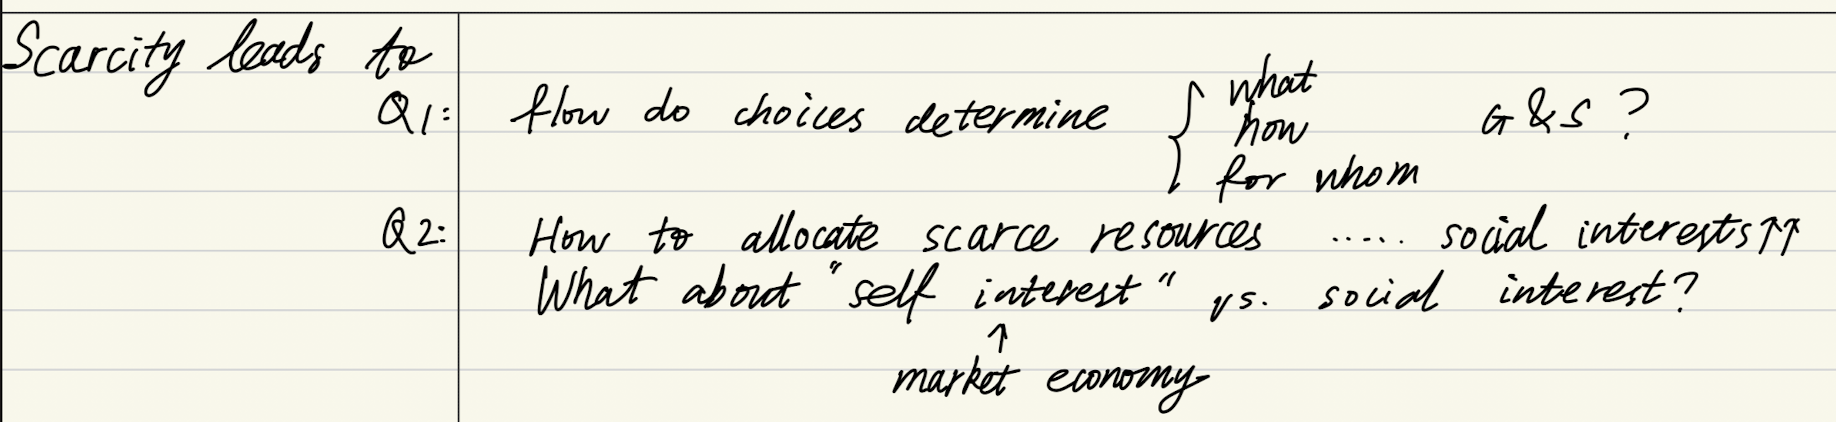 Scarcity leads to
Q1: How do choices determine { what
how
for whom
G & S ?
Q2: How to allocate scarce resources ..... social interests ↑↑
What about "self interest" vs. social interest?
↑
market economy